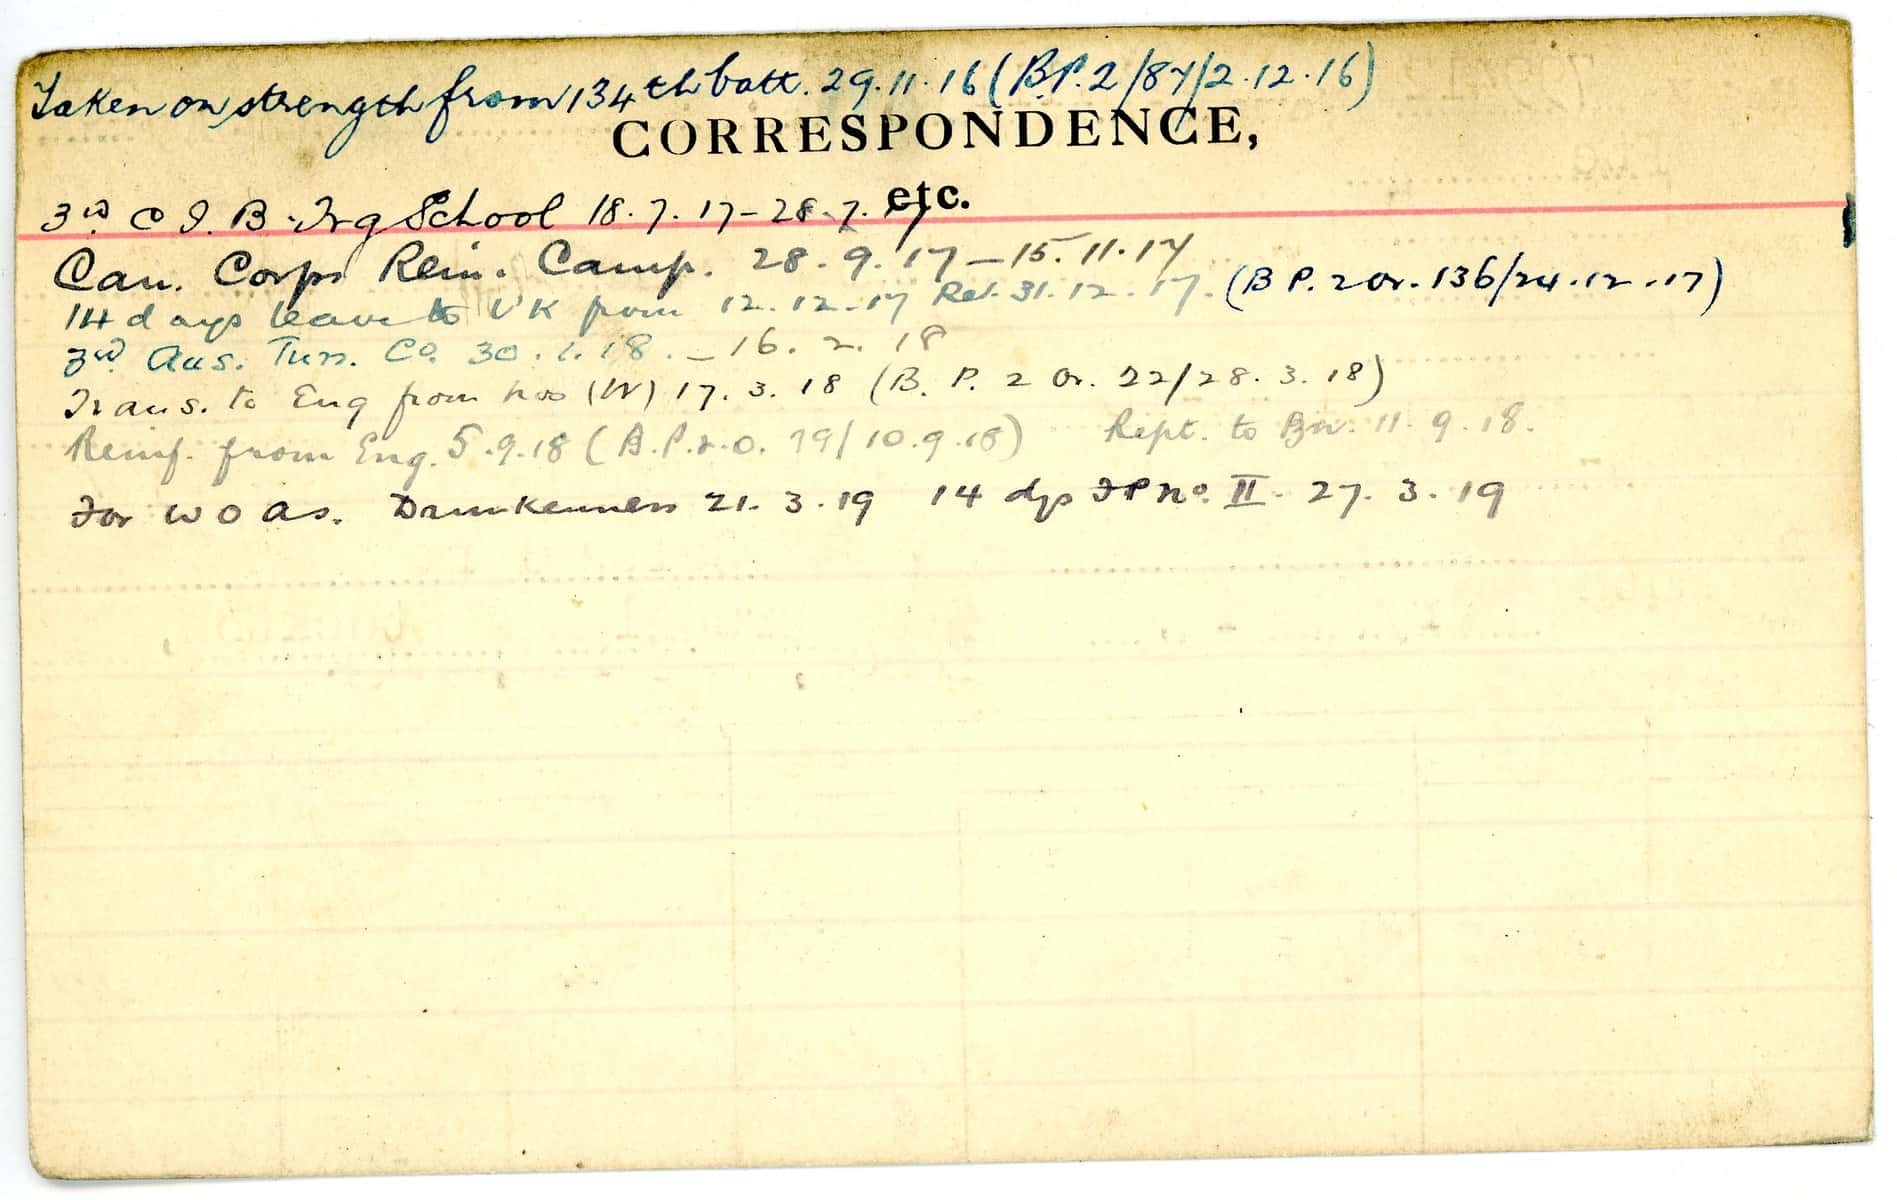 Taken on strength from 134th batt. 29.11.16 (B.P. 2/87/2.12.16)
CORRESPONDENCE,
etc.
3rd C I. B. Trg School 18.7.17-28.7.17
Can. Corps Rein. Camp. 28.9.17-15.11.17
14 days leave to UK from 12.12.17 Ret. 31.12.17. (B P. 2 Or. 136/24.12.17)
3rd Aus. Tun. Co. 30.1.18.-16.2.18
Trans. to Eng from hos (W) 17.3.18 (B. P. 2 Or. 22/28.3.18)
Reinf. from Eng. 5.9.18 (B.P.2.O. 79/10.9.18) Rept. to Bn. 11.9.18.
For W O A S. Drunkenness 21.3.19 14 dys F P No. II. 27.3.19